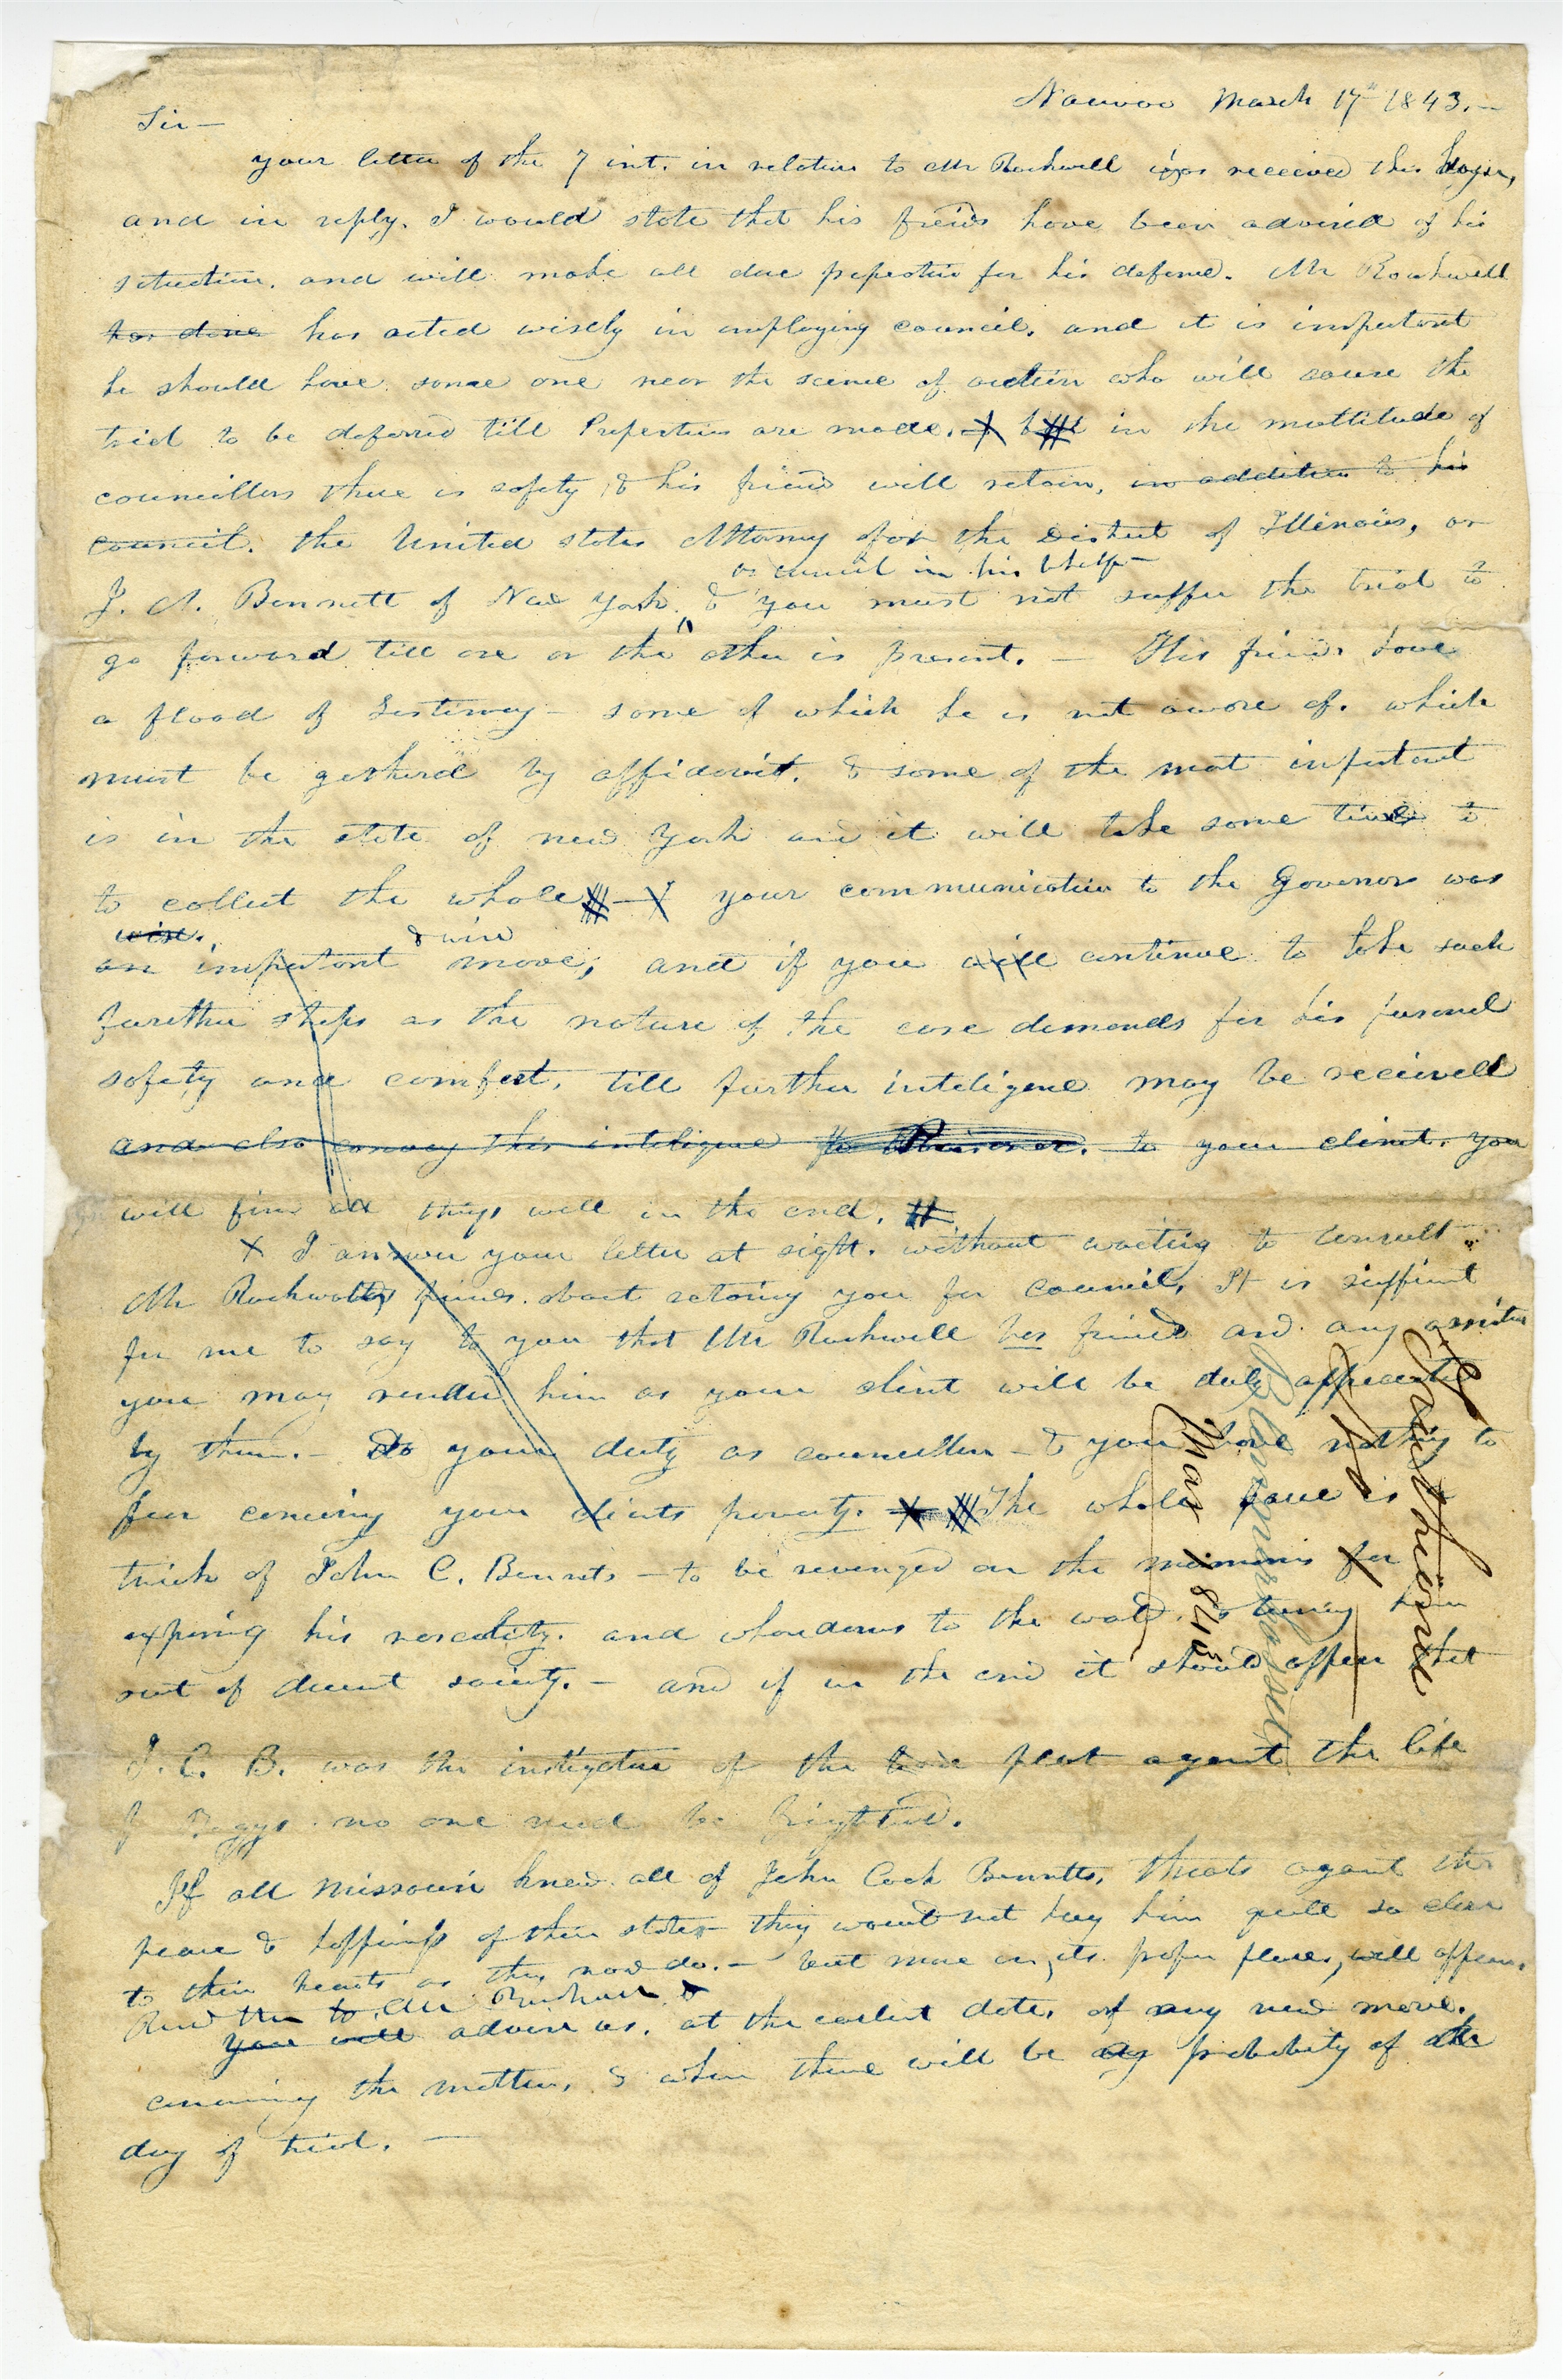 Nauvoo March 17th 1843.—
Sir—
your letter of the 7 inst. in relation to Mr Rockwell was received this
and in reply. I would state that his freinds have been advised of his
situation. and will make all due prepertion for his defence. Mr Rockwell
has done has acted wisely in employing council. and it is important
he should have some one near the scene of action who will cause the
trial to be deferred till Prepertions are made. in the multitude of
councillors there is safety & his friend will retain, in addition to his
council. the United states Attorny for the District of Illinois, or
as council in his behalf—
J. A. Bennett of New York. & you must not suffer the trial to
go forward till one or the other is present. — His friends have
a flood of testimony— some of which he is not aware of. which
must be gatherd by affidavit. & some of the most important
is in the state of new York and it will take some time to
to collect the whole— your communication to the Govenor was
wise. & wise
an important move, and if you will continue to take such
furether steps as the nature of the case demands for his personal
safety and comfort, till further inteligence may be received
and also convey this inteligence to your client. you
will find all things well in the end.
X I answer your letter at sight. without waiting to consult
Mr Rockwells friends. about retaining you for council. It is sufficient
for me to say to you that Mr Rockwell has friends and any
you may render him as your client will be duly appreciated
by them.— Do your duty as councillor— & you have nothing to
fear concerning your clients poverty. The whole is a
trick of John C. Bennets— to be revenged on the mormons for
exposing his rascality. and whoredoms to the world. & turning him
out of decent society.— and if in the end it should appear that
J. C. B. was the instigator of the plot against the life
of Boggs no one need be frightend.
If all Missouri knew all of John Cook Bennetts, threats against the
peace & happiness of their state— they would not hug him quite so close
to their hearts as they now do.— but more in its proper place, will appear.
Read this to Mr Rockwell &
you will advise us. at the earliest date, of any new move.
concerning the matter, & when there will be any probability of the
day of trial.—
Mar 1843